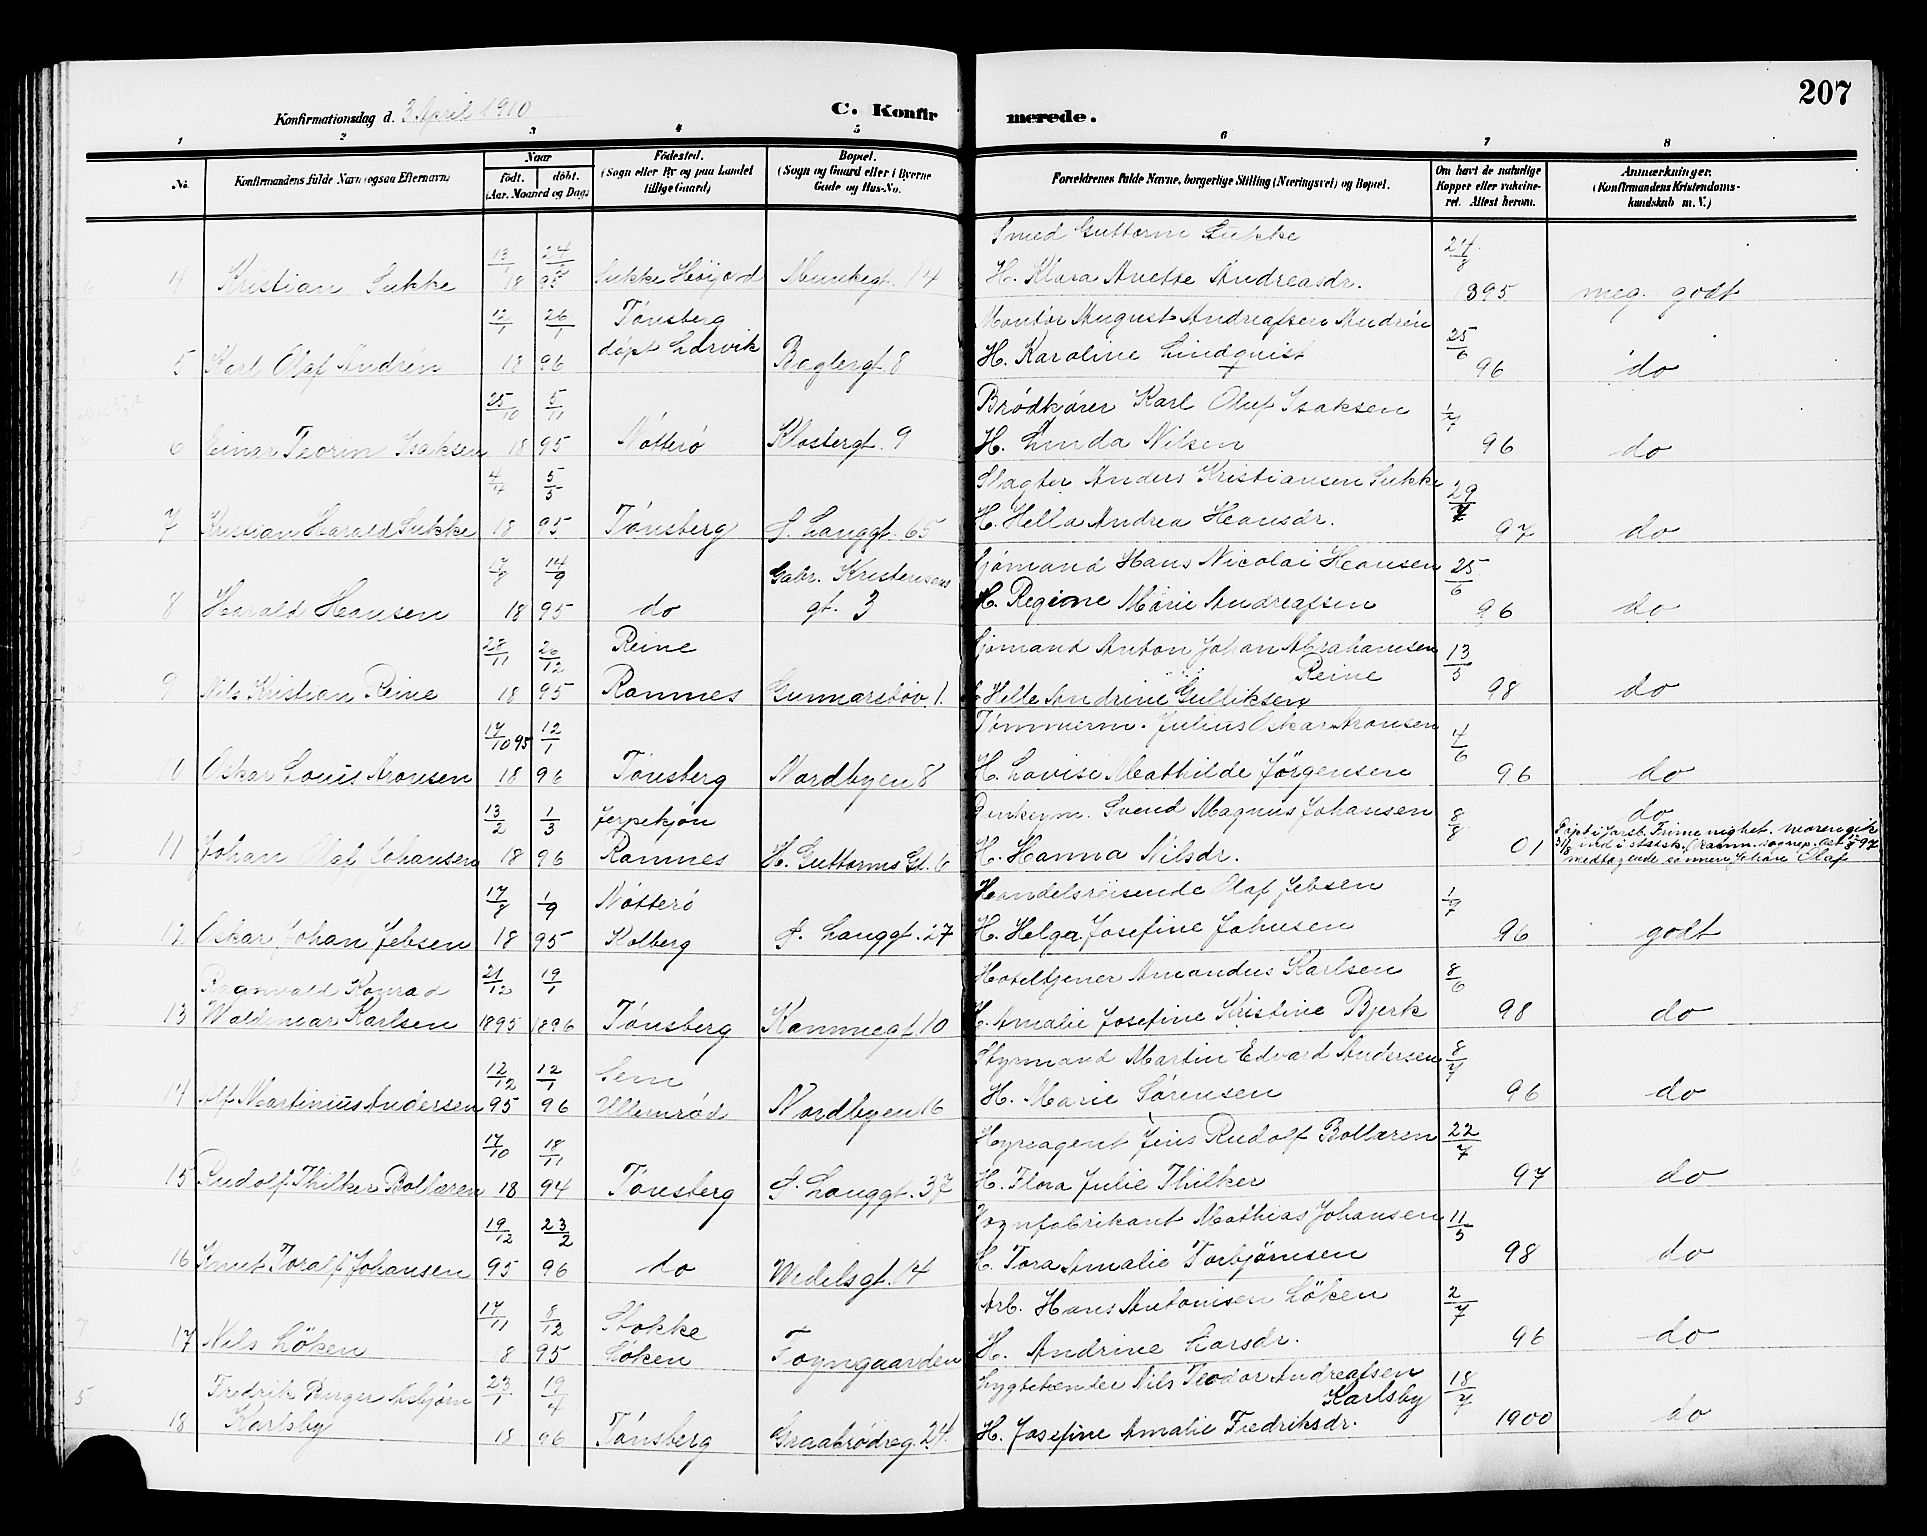 207
Konfirmationsdag d. 3 April 1910
C. Konfirmerede.
1 2 3 4 5 6 7 8
No.
Konfirmandens fulde Navn (ogsaa Efternavn)
Naar
født. døbt.
(Aar, Maaned og Dag)
Fødested.
(Sogn eller By og paa Landet
tillige Gaard)
Bopæl.
(Sogn og Gaard eller i Byerne
Gade og Hus-No.
Forældrenes fulde Navne, borgerlige Stilling (Næringsvei) og Bopæl.
Om havt de naturlige
Kopper eller vakcine-
ret. Attest herom.
Anmærkninger.
(Konfirmandens Kristendoms-
kundskab m. V.)
Smed Guttorm Sukke 24/8
4 Kristian Sukke 18 95 Sukke Høijord Munkegt. 14 H. Klara Anette Andreasdr. 1895 meg. godt
12/1 26/1 Tønsberg Montør August Andreassen Andrén 25/6
5 Karl Olaf Andrén 18 96 døpt Larvik Baglergt. 8 H. Karoline Lindquist 96 do
25/10 5/11 Brødkjører Karl Oluf Isaksen
6 Einar Teorin Isaksen 18 95 Nøtterø Klostergt. 9 H. Linda Nilsen 96 do
5/5 Slagter Anders Kristiansen Sukke 29/
7 Kristian Harald Sukke 18 95 Tønsberg S. Langgt. 65 H. Hella Andrea Hansdr. 97 do
14/9 Gabr. Kristensens Sjømand Hans Nicolai Hansen 25/6
8 Harald Hansen 18 95 do gt. 3 H. Regine Marie Andreassen 96 do
28/11 26/12 Reine Sjømand Anton Johan Abrahamsen 13/5
Reine
9 Nils Kristian Reine 18 95 Ramnes Gunnarsbøv 1. H. Helle Andrine Gulliksen 98 do
17/10 95 12/1 Tømmerm. Julius Oskar Aronsen 4/6
10 Oskar Louis Aronsen 18 96 Tønsberg Nordbyen 8 H. Lovise Mathilde Jørgensen 96 do
13/2 1/3 Jerpekjøn Svend Magnus Johansen 8/8 do
11 Johan Olaf Johansen 18 96 Ramnes H. Guttorms Gt. 6 H. Hanna Nilsdr. 01
medtagende sønnen Johan Olaf
17/8 1/9 Nøtterø Handelsreisende Olaf Jebsen
12 Oskar Johan Jebsen 18 95 Kolberg S. Langgt. 27 H. Helga Josefine Johnsen 96 godt
Ragnvald Konrad 21/12 19/1 Hoteltjener Amandus Karlsen 8/6
13 Waldemar Karlsen 1895 1896 Tønsberg Kammegt. 10 H. Amalie Josefine Kristine Bjerk 98 do
12/12 12/1 Sem Styrmand Martin Edvard Andersen 8/7
14 Alf Martinius Andersen 95 96 Ullemrød Nordbyen 16 H. Marie Sørensen 96 do
17/10 18/11 Hyreagent Jens Rudolf Bollæren 22/7
15 Rudolf Thilker Bollæren 18 94 Tønsberg S. Langgt. 37 H. Flora Julie Thilker 97 do
19/12 23/2 Vognfabrikant Mathias Johansen 11/5
16 Knut Toralf Johansen 95 96 do Wedelsgt. 14 H. Tora Amalie Torbjørnsen 98 do
17/11 8/12 Stokke Arb. Hans Antonisen Løken 2/7
17 Nils Løken 8 95 Løken Foyngaarden H. Andrine Larsdr. 96 do
Fredrik Birger Asbjørn 23/1 19/4 Lygtetænder Nils Teodor Andreassen 18/7
Karlsby
18 Karlsby 18 96 Tønsberg Graabrødreg. 24 H. Josefine Amalie Fredriksdr. 1900 do